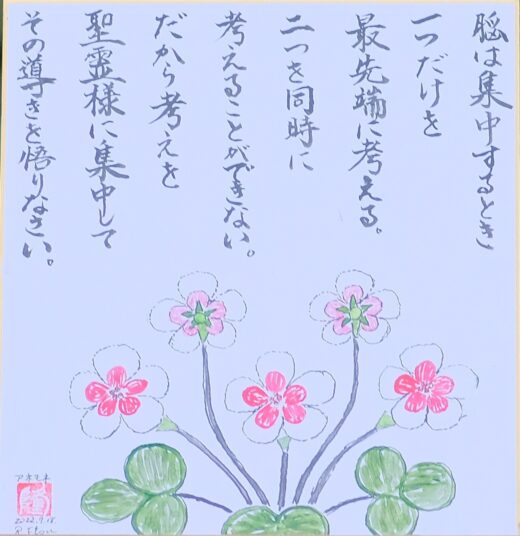 脳は集中するとき
一つだけを
最先端に考える。
二つを同時に
考えることができない。
だから考えを
聖霊様に集中して
その導きを悟りなさい。
アネモネ